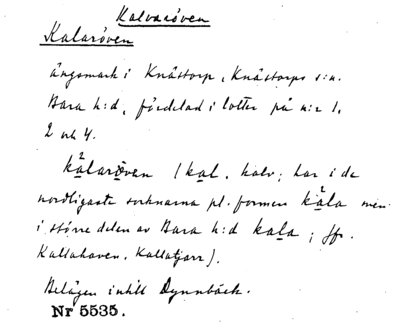 Kalvaröven
Kalaröven
ängsmark i Knästorp, Knästorps s:n.
Bara h:d, fördelad i lotter på n:r 1,
2 och 4.
kålaröven (kal, kalv; har i de
nordligaste socknarna pl. formen kåla men
i större delen av Bara h:d kala; jfr.
Kallahaven, Kallatjarr).
Belägen intill Dynnbäck.
Nr 5535.